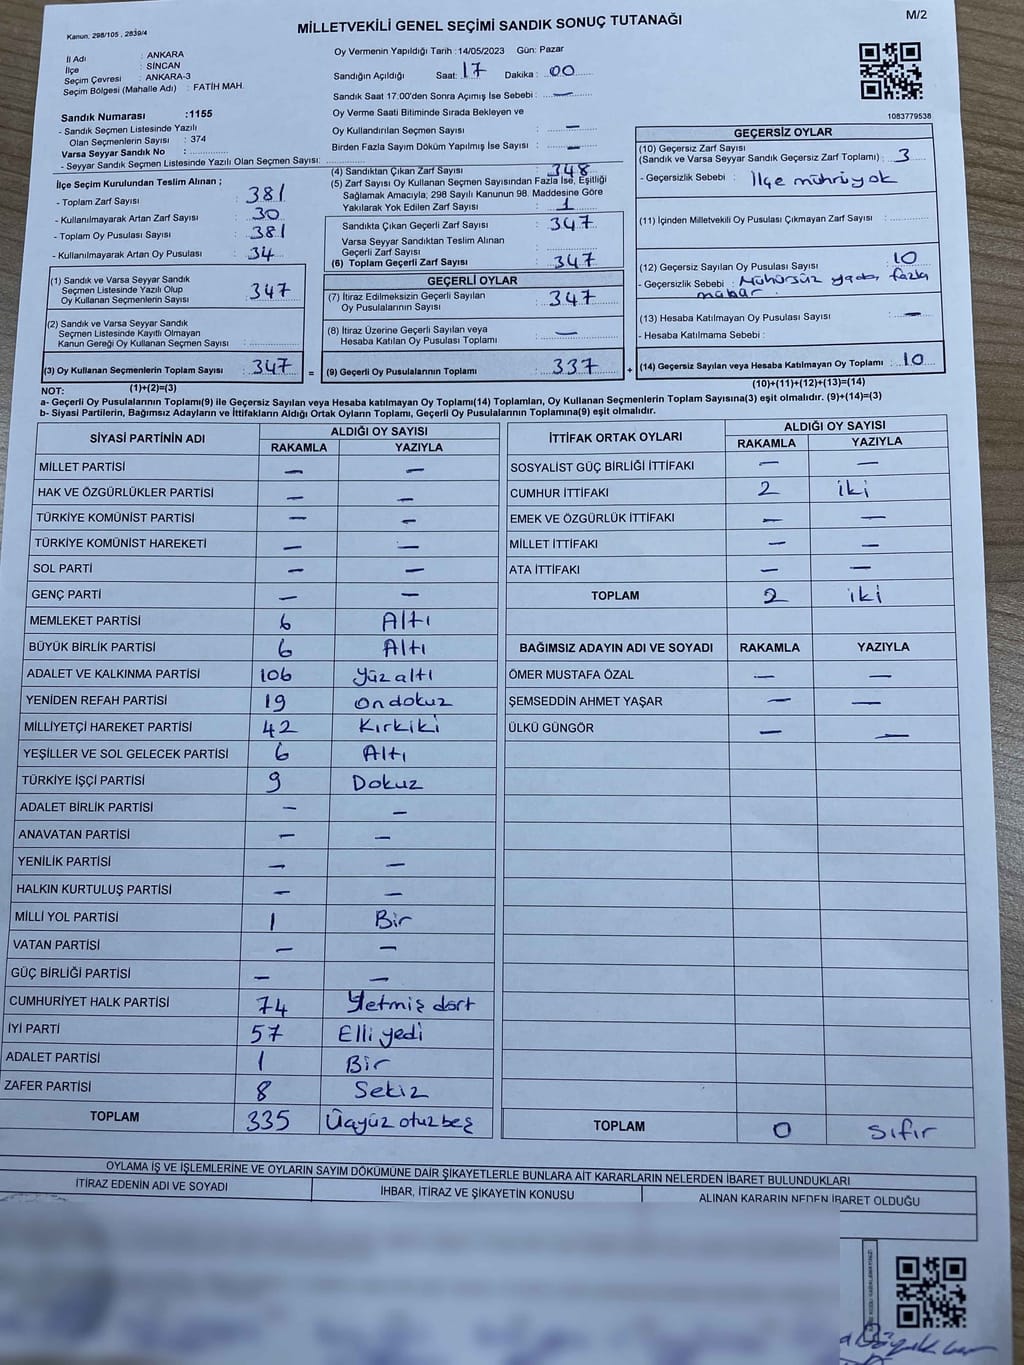 Kanun. 298/105 , 2839/4
MİLLETVEKİLİ GENEL SEÇİMİ SANDIK SONUÇ TUTANAĞI
M/2
İl Adı : ANKARA
İlçe : SİNCAN
Seçim Çevresi : ANKARA-3
Seçim Bölgesi (Mahalle Adı) : FATİH MAH.
Sandık Numarası :1155
- Sandık Seçmen Listesinde Yazılı
Olan Seçmenlerin Sayısı : 374
Varsa Seyyar Sandık No :
- Seyyar Sandık Seçmen Listesinde Yazılı Olan Seçmen Sayısı:
Oy Vermenin Yapıldığı Tarih :14/05/2023 Gün: Pazar
Sandığın Açıldığı Saat: 17 Dakika : 00
Sandık Saat 17.00'den Sonra Açımış İse Sebebi : —
Oy Verme Saati Bitiminde Sırada Bekleyen ve
Oy Kullandırılan Seçmen Sayısı : —
Birden Fazla Sayım Döküm Yapılmış İse Sayısı : —
1083779538
İlçe Seçim Kurulundan Teslim Alınan ;
- Toplam Zarf Sayısı : 381
- Kullanılmayarak Artan Zarf Sayısı : 30
- Toplam Oy Pusulası Sayısı : 381
- Kullanılmayarak Artan Oy Pusulası : 34
(1) Sandık ve Varsa Seyyar Sandık
Seçmen Listesinde Yazılı Olup
Oy Kullanan Seçmenlerin Sayısı : 347
(2) Sandık ve Varsa Seyyar Sandık
Seçmen Listesinde Kayıtlı Olmayan
Kanun Gereği Oy Kullanan Seçmen Sayısı :
(3) Oy Kullanan Seçmenlerin Toplam Sayısı : 347
(1)+(2)=(3)
(4) Sandıktan Çıkan Zarf Sayısı : 348
(5) Zarf Sayısı Oy Kullanan Seçmen Sayısından Fazla İse, Eşitliği
Sağlamak Amacıyla; 298 Sayılı Kanunun 98. Maddesine Göre
Yakılarak Yok Edilen Zarf Sayısı : 1
Sandıkta Çıkan Geçerli Zarf Sayısı : 347
Varsa Seyyar Sandıktan Teslim Alınan
Geçerli Zarf Sayısı :
(6) Toplam Geçerli Zarf Sayısı : 347
GEÇERLİ OYLAR
(7) İtiraz Edilmeksizin Geçerli Sayılan
Oy Pusulalarının Sayısı : 347
(8) İtiraz Üzerine Geçerli Sayılan veya
Hesaba Katılan Oy Pusulası Toplamı : —
= (9) Geçerli Oy Pusulalarının Toplamı : 337
GEÇERSİZ OYLAR
(10) Geçersiz Zarf Sayısı
(Sandık ve Varsa Seyyar Sandık Geçersiz Zarf Toplamı) : 3
- Geçersizlik Sebebi : İlçe mührü yok
(11) İçinden Milletvekili Oy Pusulası Çıkmayan Zarf Sayısı :
(12) Geçersiz Sayılan Oy Pusulası Sayısı : 10
- Geçersizlik Sebebi : Mühürsüz yada fazla
(13) Hesaba Katılmayan Oy Pusulası Sayısı : —
- Hesaba Katılmama Sebebi :
+ (14) Geçersiz Sayılan veya Hesaba Katılmayan Oy Toplamı : 10
(10)+(11)+(12)+(13)=(14)
NOT:
a- Geçerli Oy Pusulalarının Toplamı(9) ile Geçersiz Sayılan veya Hesaba katılmayan Oy Toplamı(14) Toplamları, Oy Kullanan Seçmenlerin Toplam Sayısına(3) eşit olmalıdır. (9)+(14)=(3)
b- Siyasi Partilerin, Bağımsız Adayların ve İttifakların Aldığı Ortak Oyların Toplamı, Geçerli Oy Pusulalarının Toplamına(9) eşit olmalıdır.
SİYASİ PARTİNİN ADI ALDIĞI OY SAYISI
RAKAMLA YAZIYLA
MİLLET PARTİSİ — —
HAK VE ÖZGÜRLÜKLER PARTİSİ — —
TÜRKİYE KOMÜNİST PARTİSİ — —
TÜRKİYE KOMÜNİST HAREKETİ — —
SOL PARTİ — —
GENÇ PARTİ — —
MEMLEKET PARTİSİ 6 Altı
BÜYÜK BİRLİK PARTİSİ 6 Altı
ADALET VE KALKINMA PARTİSİ 106 Yüz altı
YENİDEN REFAH PARTİSİ 19 on dokuz
MİLLİYETÇİ HAREKET PARTİSİ 42 Kırkiki
YEŞİLLER VE SOL GELECEK PARTİSİ 6 Altı
TÜRKİYE İŞÇİ PARTİSİ 9 Dokuz
ADALET BİRLİK PARTİSİ — —
ANAVATAN PARTİSİ — —
YENİLİK PARTİSİ — —
HALKIN KURTULUŞ PARTİSİ — —
MİLLİ YOL PARTİSİ 1 Bir
VATAN PARTİSİ — —
GÜÇ BİRLİĞİ PARTİSİ — —
CUMHURİYET HALK PARTİSİ 74 Yetmiş dört
İYİ PARTİ 57 Elli yedi
ADALET PARTİSİ 1 Bir
ZAFER PARTİSİ 8 Sekiz
TOPLAM 335 Üçyüz otuz beş
İTTİFAK ORTAK OYLARI ALDIĞI OY SAYISI
RAKAMLA YAZIYLA
SOSYALİST GÜÇ BİRLİĞİ İTTİFAKI — —
CUMHUR İTTİFAKI 2 iki
EMEK VE ÖZGÜRLÜK İTTİFAKI — —
MİLLET İTTİFAKI — —
ATA İTTİFAKI — —
TOPLAM 2 iki
BAĞIMSIZ ADAYIN ADI VE SOYADI RAKAMLA YAZIYLA
ÖMER MUSTAFA ÖZAL — —
ŞEMSEDDİN AHMET YAŞAR — —
ÜLKÜ GÜNGÖR — —
TOPLAM 0 Sıfır
OYLAMA İŞ VE İŞLEMLERİNE VE OYLARIN SAYIM DÖKÜMÜNE DAİR ŞİKAYETLERLE BUNLARA AİT KARARLARIN NELERDEN İBARET BULUNDUKLARI
İTİRAZ EDENİN ADI VE SOYADI İHBAR, İTİRAZ VE ŞİKAYETİN KONUSU ALINAN KARARIN NEDEN İBARET OLDUĞU